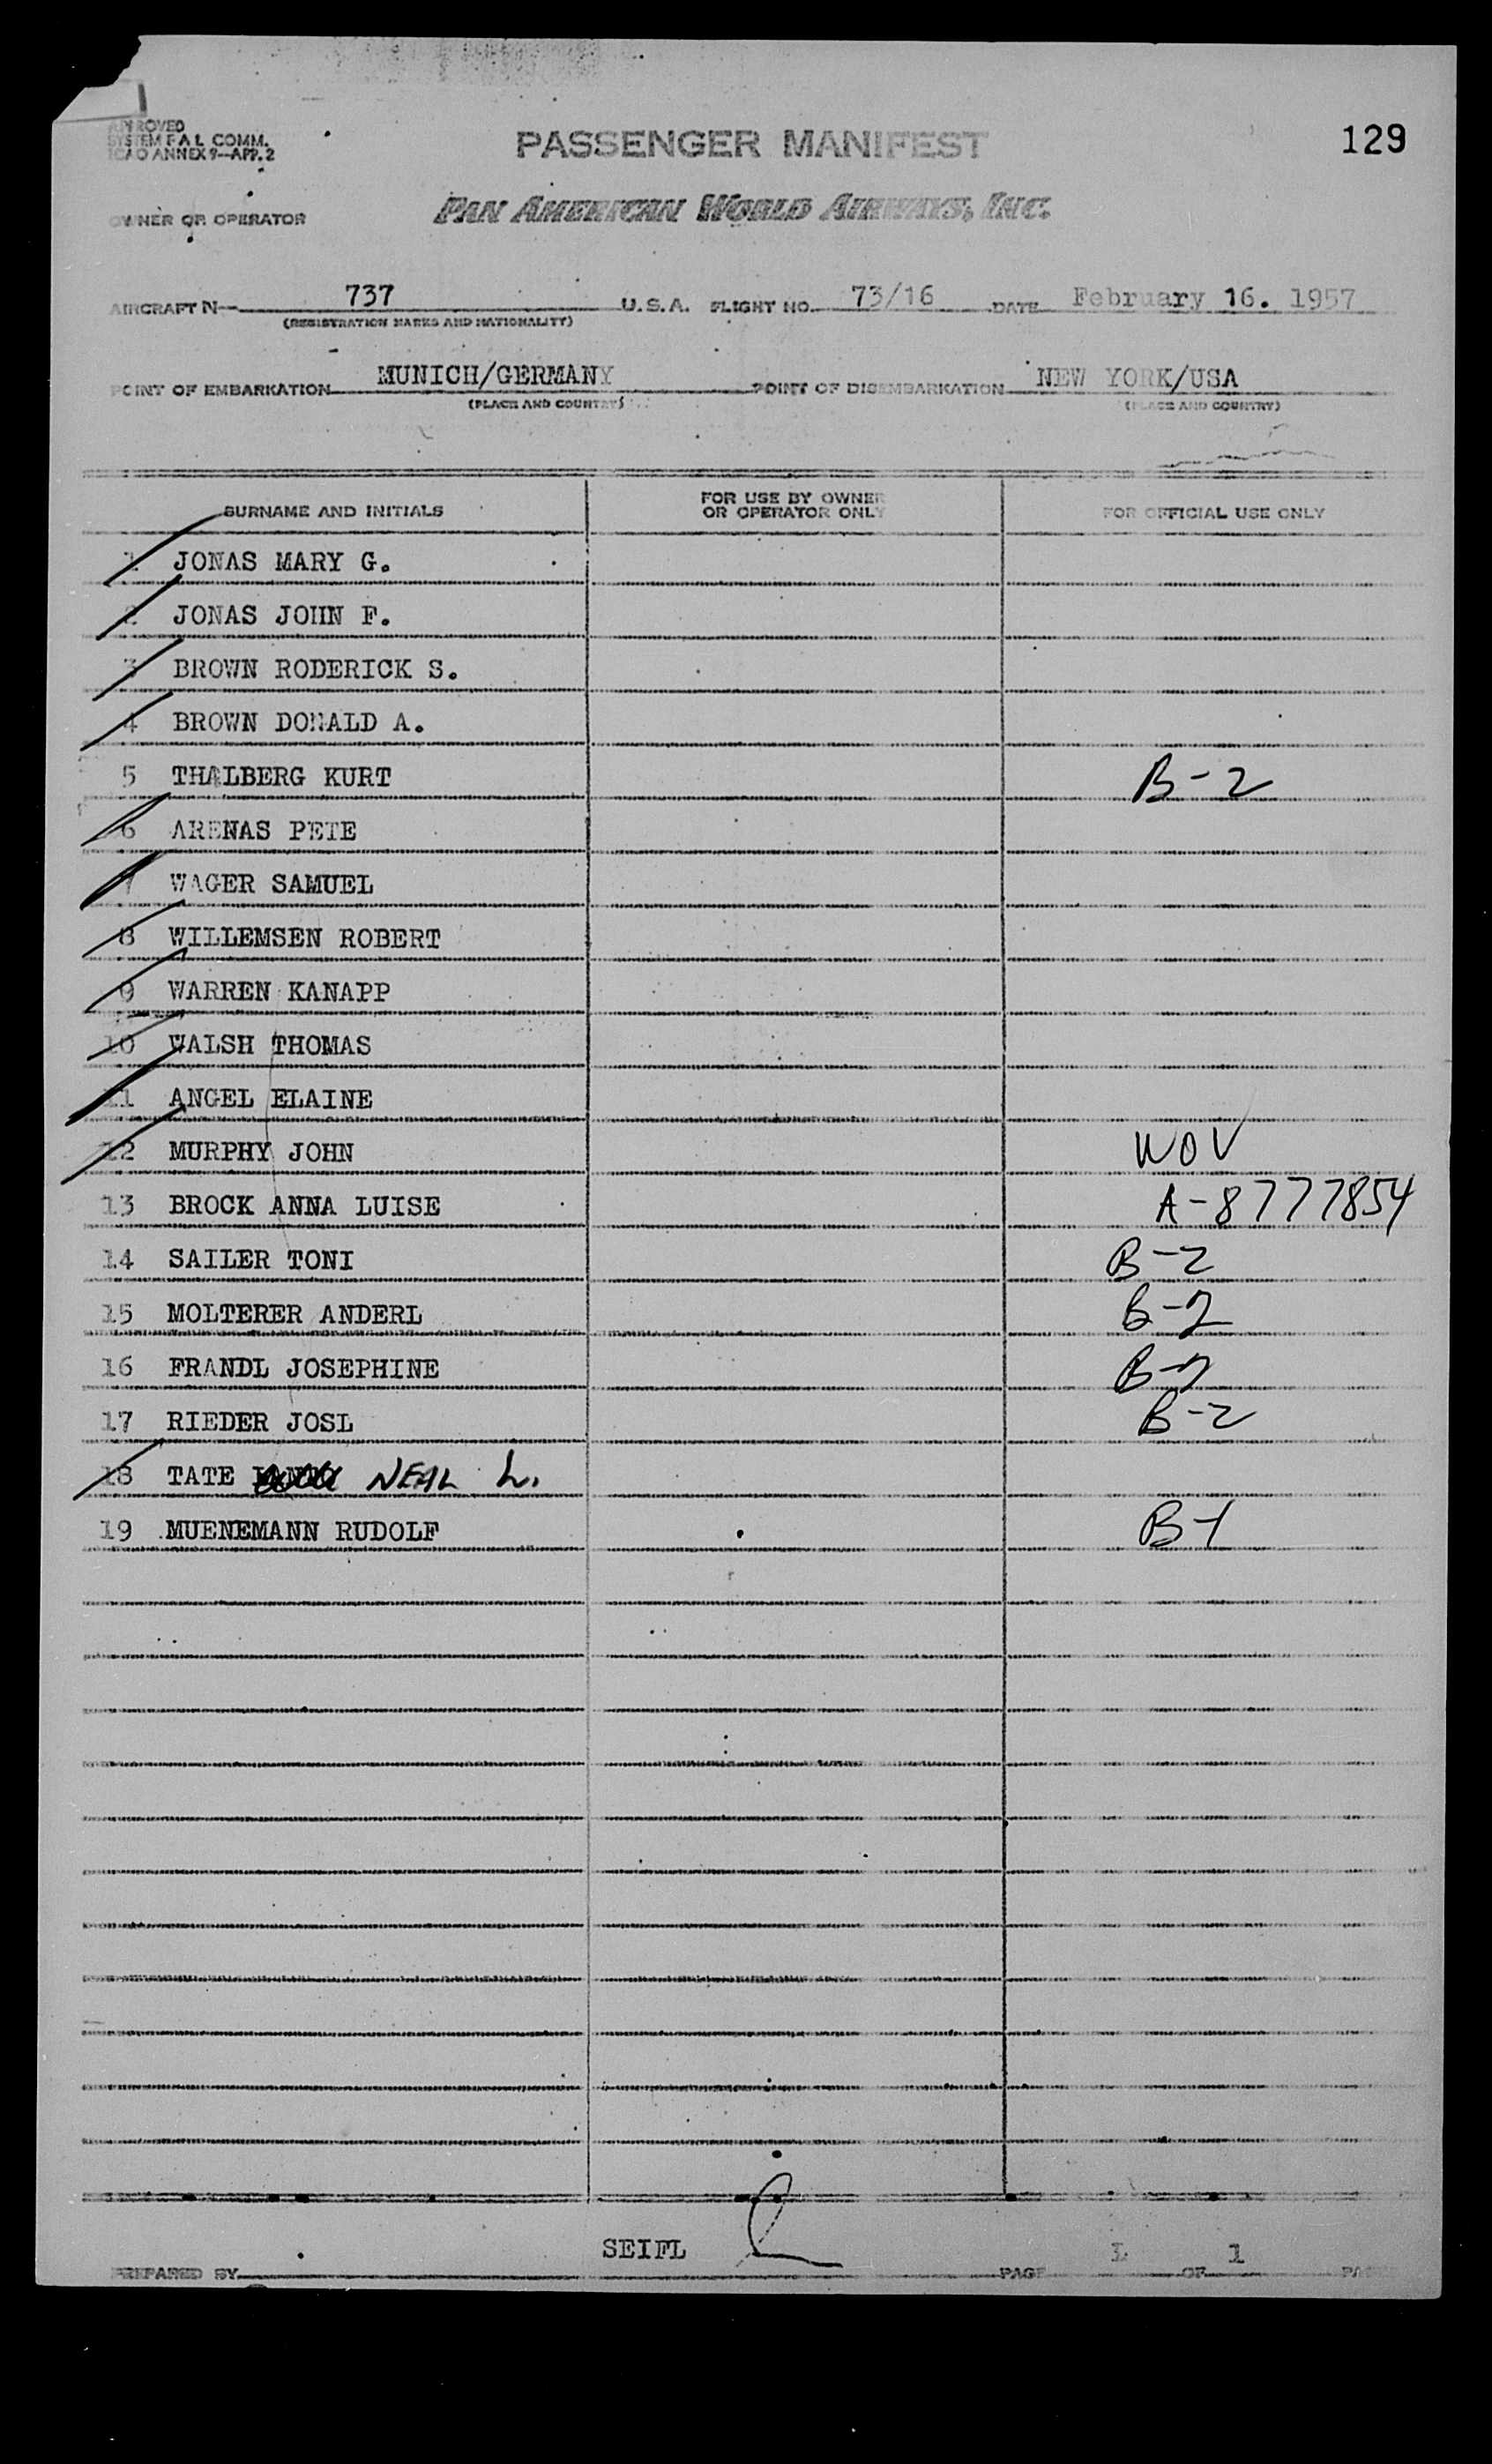 129
APPROVED
SYSTEM F A L COMM.
ICAO ANNEX 9—APP. 2
PASSENGER MANIFEST
OWNER OR OPERATOR
PAN AMERICAN WORLD AIRWAYS, INC.
AIRCRAFT N— 737 U.S.A. FLIGHT NO. 73/16 DATE February 16. 1957
(REGISTRATION MARKS AND NATIONALITY)
POINT OF EMBARKATION MUNICH/GERMANY POINT OF DISEMBARKATION NEW YORK/USA
(PLACE AND COUNTRY) (PLACE AND COUNTRY)
SURNAME AND INITIALS FOR USE BY OWNER OR OPERATOR ONLY FOR OFFICIAL USE ONLY
1 JONAS MARY G.
2 JONAS JOHN F.
3 BROWN RODERICK S.
4 BROWN DONALD A.
5 THALBERG KURT B-2
6 ARENAS PETE
7 WAGER SAMUEL
8 WILLEMSEN ROBERT
9 WARREN KANAPP
10 WALSH THOMAS
11 ANGEL ELAINE
12 MURPHY JOHN WOV
13 BROCK ANNA LUISE A-8777854
14 SAILER TONI B-2
15 MOLTERER ANDERL B-2
16 FRANDL JOSEPHINE B-2
17 RIEDER JOSL B-2
18 TATE NEAL L.
19 MUENEMANN RUDOLF B-1
PREPARED BY SEIFL PAGE 1 OF 1 PAGES